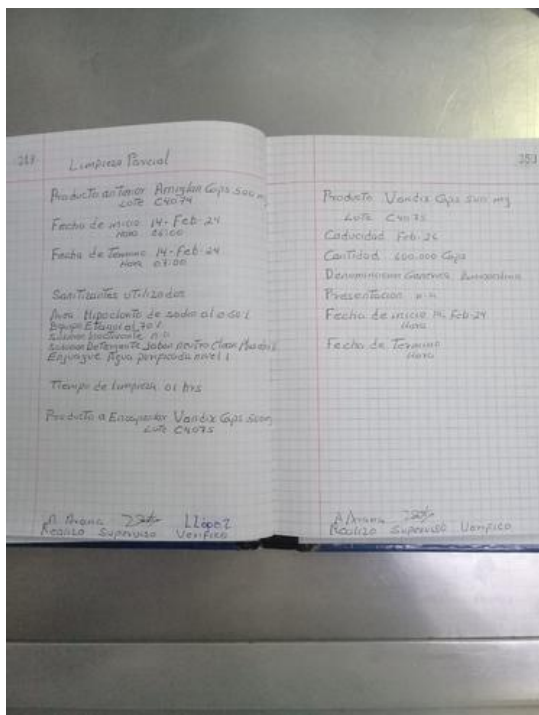 Limpieza Parcial
Producto anterior Amixylan Caps 500 mg
Lote C4074
Fecha de inicio 14-Feb-24
Hora 06:00
Fecha de Termino 14-Feb-24
Hora 07:00
Sanitizantes utilizados
Área Hipoclorito de sodio al 0.50%
Equipo Etanol al 70%
n.a
Solución Detergente Jabón neutro Clean
Enjuague Agua purificada nivel 1
Tiempo de limpieza 01 hrs
Producto a Encapsular Vandix Caps 500mg
Lote C4075
A Arana LLópez
Realizo Superviso Verifico
253
Producto Vandix Caps 500 mg
Lote C4075
Caducidad Feb-26
Cantidad 600,000 Caps
Denominación Generica
Presentación n.a
Fecha de inicio 14-Feb-24
Hora
Fecha de Termino
Hora
A Arana
Realizo Superviso Verifico